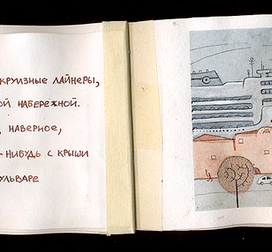 КРУИЗНЫЕ ЛАЙНЕРЫ,
ОЙ НАБЕРЕЖНОЙ.
, НАВЕРНОЕ,
-НИБУДЬ С КРЫШИ
УЛЬВАРЕ